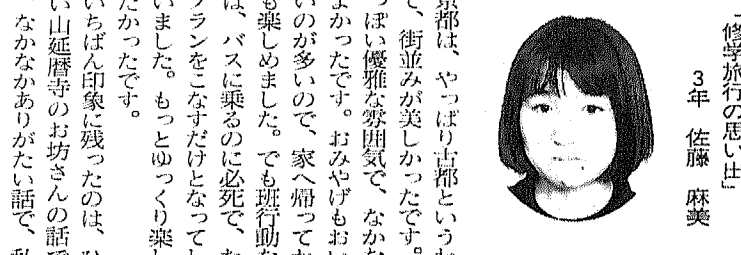 「修学旅行の思い出」
3年 佐藤 麻美
京都は、やっぱり古都という
て、街並みが美しかったです。
っぽい優雅な雰囲気で、なかな
よかったです。おみやげもおい
いのが多いので、家へ帰ってか
も楽しめました。でも班行動な
は、バスに乗るのに必死で、な
プランをこなすだけとなってし
いました。もっとゆっくり楽し
たかったです。
いちばん印象に残ったのは、ひ
い山延暦寺のお坊さんの話で
、なかなかありがたい話で、私